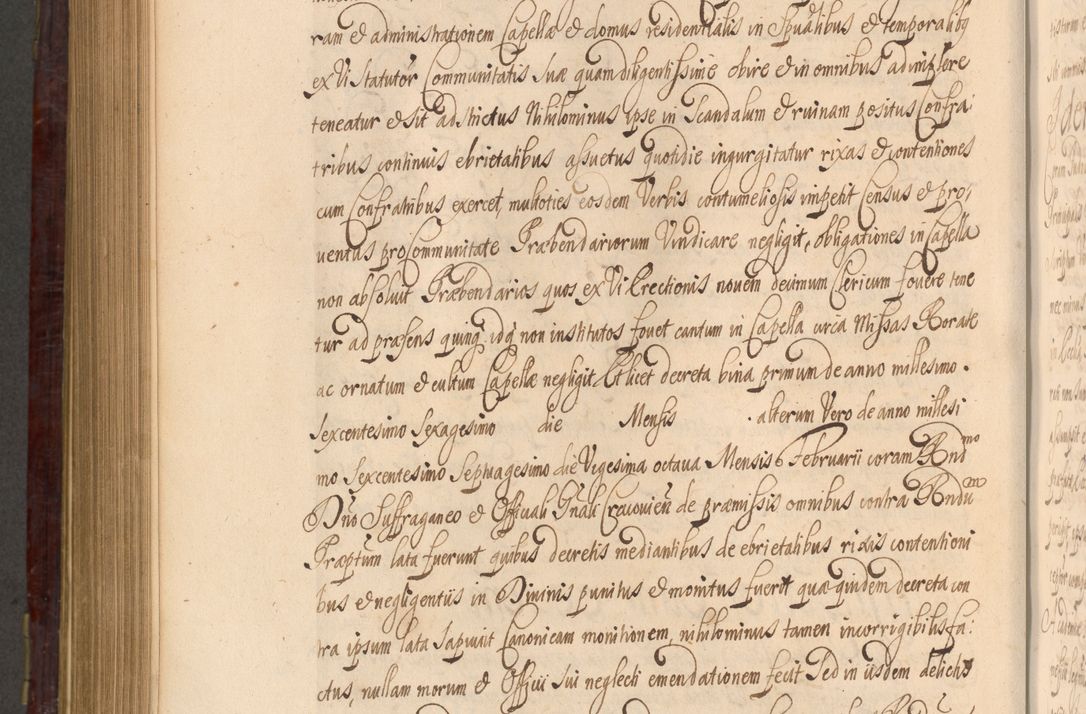 ram et administrationem Capellæ et domus residentialis in Spualibus et temporalibq
ex Vi statutor Communitatis suæ quam diligentissime obire et in omnibus adimplere
teneatur et sit adstrictus Nihilominus ipse in Scandalum et ruinam positus Confra
tribus continuis ebrietatibus assuetus quotidie ingurgitatur rixas et contentiones
cum Confratribus exercet, multoties eosdem Verbis contumeliosis impetit Census et pro,
ventus pro Communitate Præbendariorum Vindicare negligit, obligationes in Capella
non absoluit Præbendarios quos ex Vi Erectionis novem decimum Clericum fovere tene
tur ad præsens quinq idq non institutos fovet cantum in Capella circa Missas Rorate
ac ornatum et cultum Capellæ negligit Et licet decreta bina primum de anno millesimo.
Sexcentesimo Sexagesimo die Mensis alterum Vero de anno millesi
mo Sexcentesimo Septuagesimo die Vigesima octava Mensis Februarii coram Rndmo
Dno Suffraganeo et Officiali Gnali Cracovien de præmissis omnibus contra Rndum
Præptum lata fuerunt quibus decretis mediantibus de ebrietatibus rixis contentioni
bus et negligentiis in Divinis punitus et monitus fuerit quæ quidem decreta con
tra ipsum lata sapiunt Canonicam monitionem, nihilominus tamen incorrigibilis fa:
ctus, nullam morum et Officii sui neglecti emendationem fecit Sed in iisdem delictis